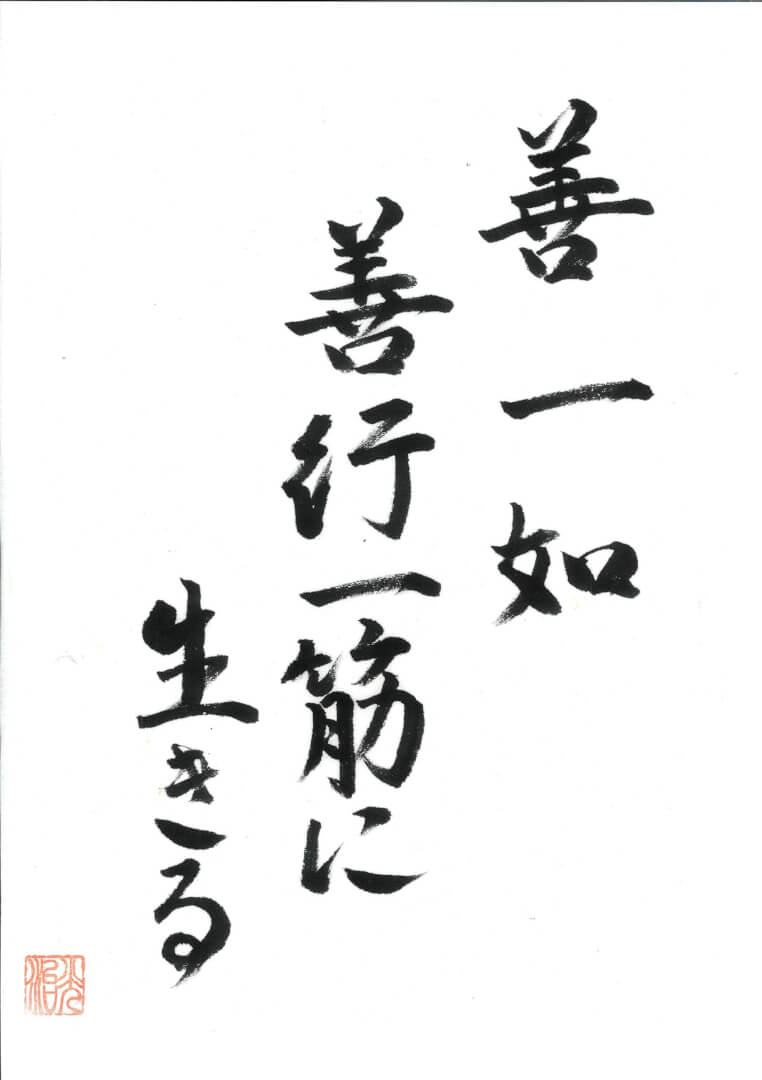 善一如
善行一筋に
生きる